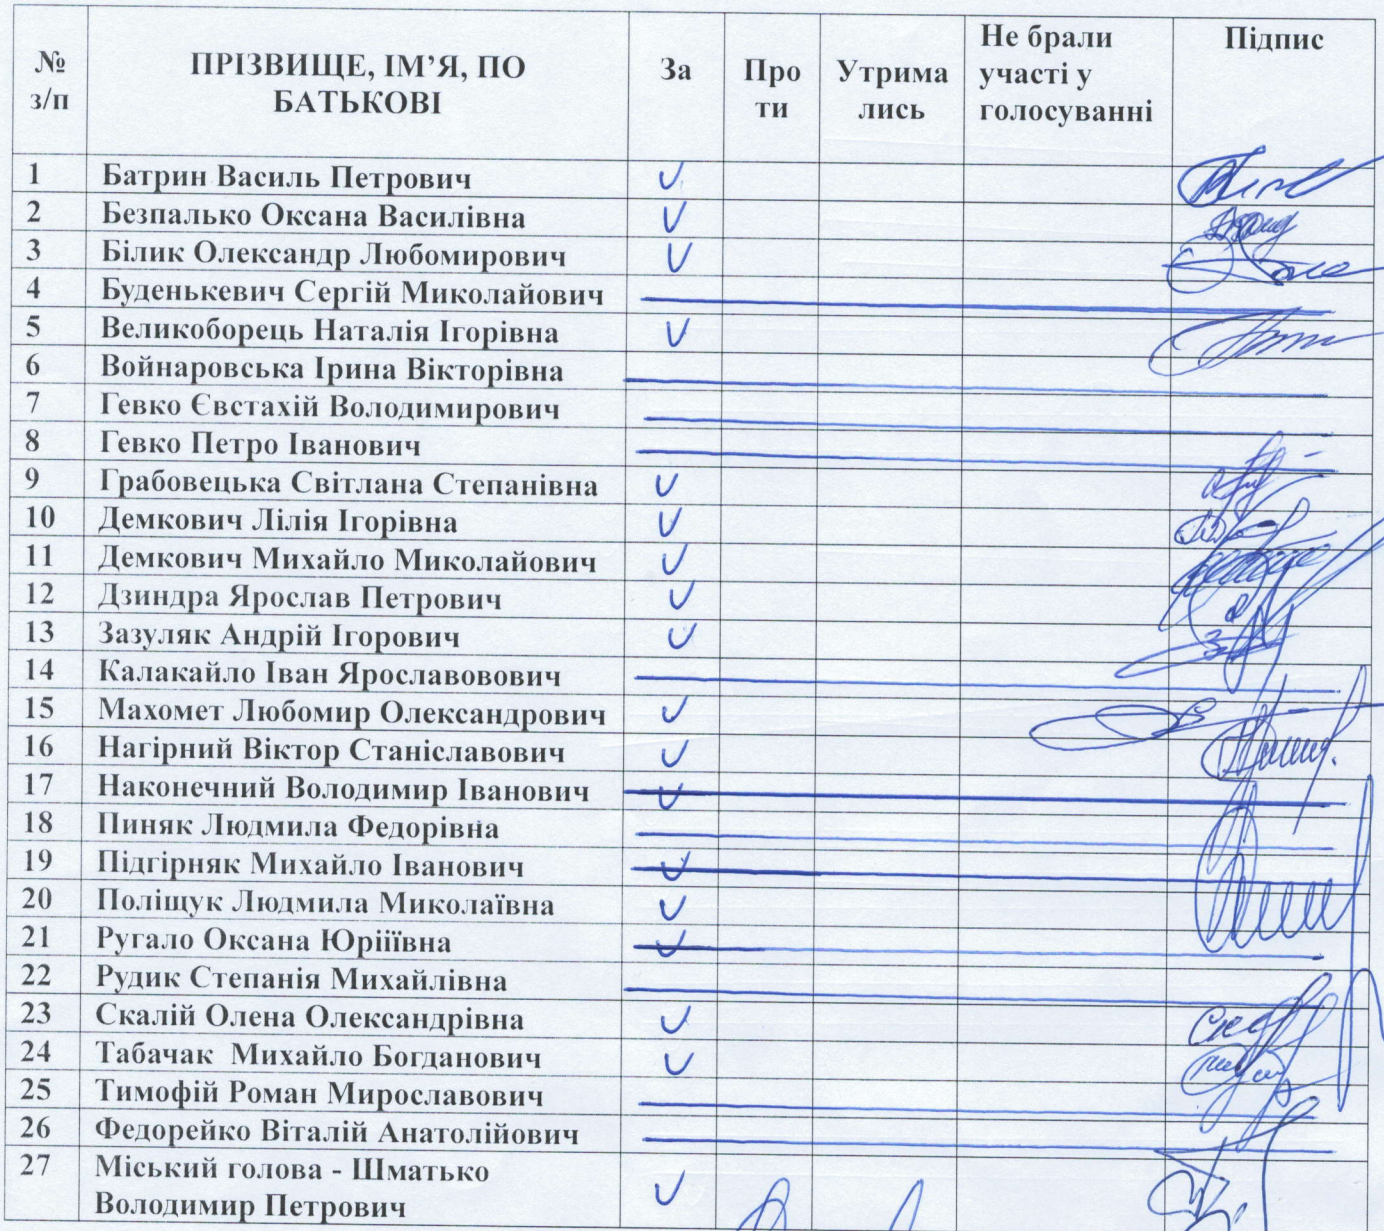 № з/п ПРІЗВИЩЕ, ІМ’Я, ПО БАТЬКОВІ За Про ти Утрима лись Не брали участі у голосуванні Підпис
1 Батрин Василь Петрович
2 Безпалько Оксана Василівна
3 Білик Олександр Любомирович
4 Буденькевич Сергій Миколайович
5 Великоборець Наталія Ігорівна
6 Войнаровська Ірина Вікторівна
7 Гевко Євстахій Володимирович
8 Гевко Петро Іванович
9 Грабовецька Світлана Степанівна
10 Демкович Лілія Ігорівна
11 Демкович Михайло Миколайович
12 Дзиндра Ярослав Петрович
13 Зазуляк Андрій Ігорович
14 Калакайло Іван Ярославовович
15 Махомет Любомир Олександрович
16 Нагірний Віктор Станіславович
17 Наконечний Володимир Іванович
18 Пиняк Людмила Федорівна
19 Підгірняк Михайло Іванович
20 Поліщук Людмила Миколаївна
21 Ругало Оксана Юріїївна
22 Рудик Степанія Михайлівна
23 Скалій Олена Олександрівна
24 Табачак Михайло Богданович
25 Тимофій Роман Мирославович
26 Федорейко Віталій Анатолійович
27 Міський голова - Шматько
Володимир Петрович